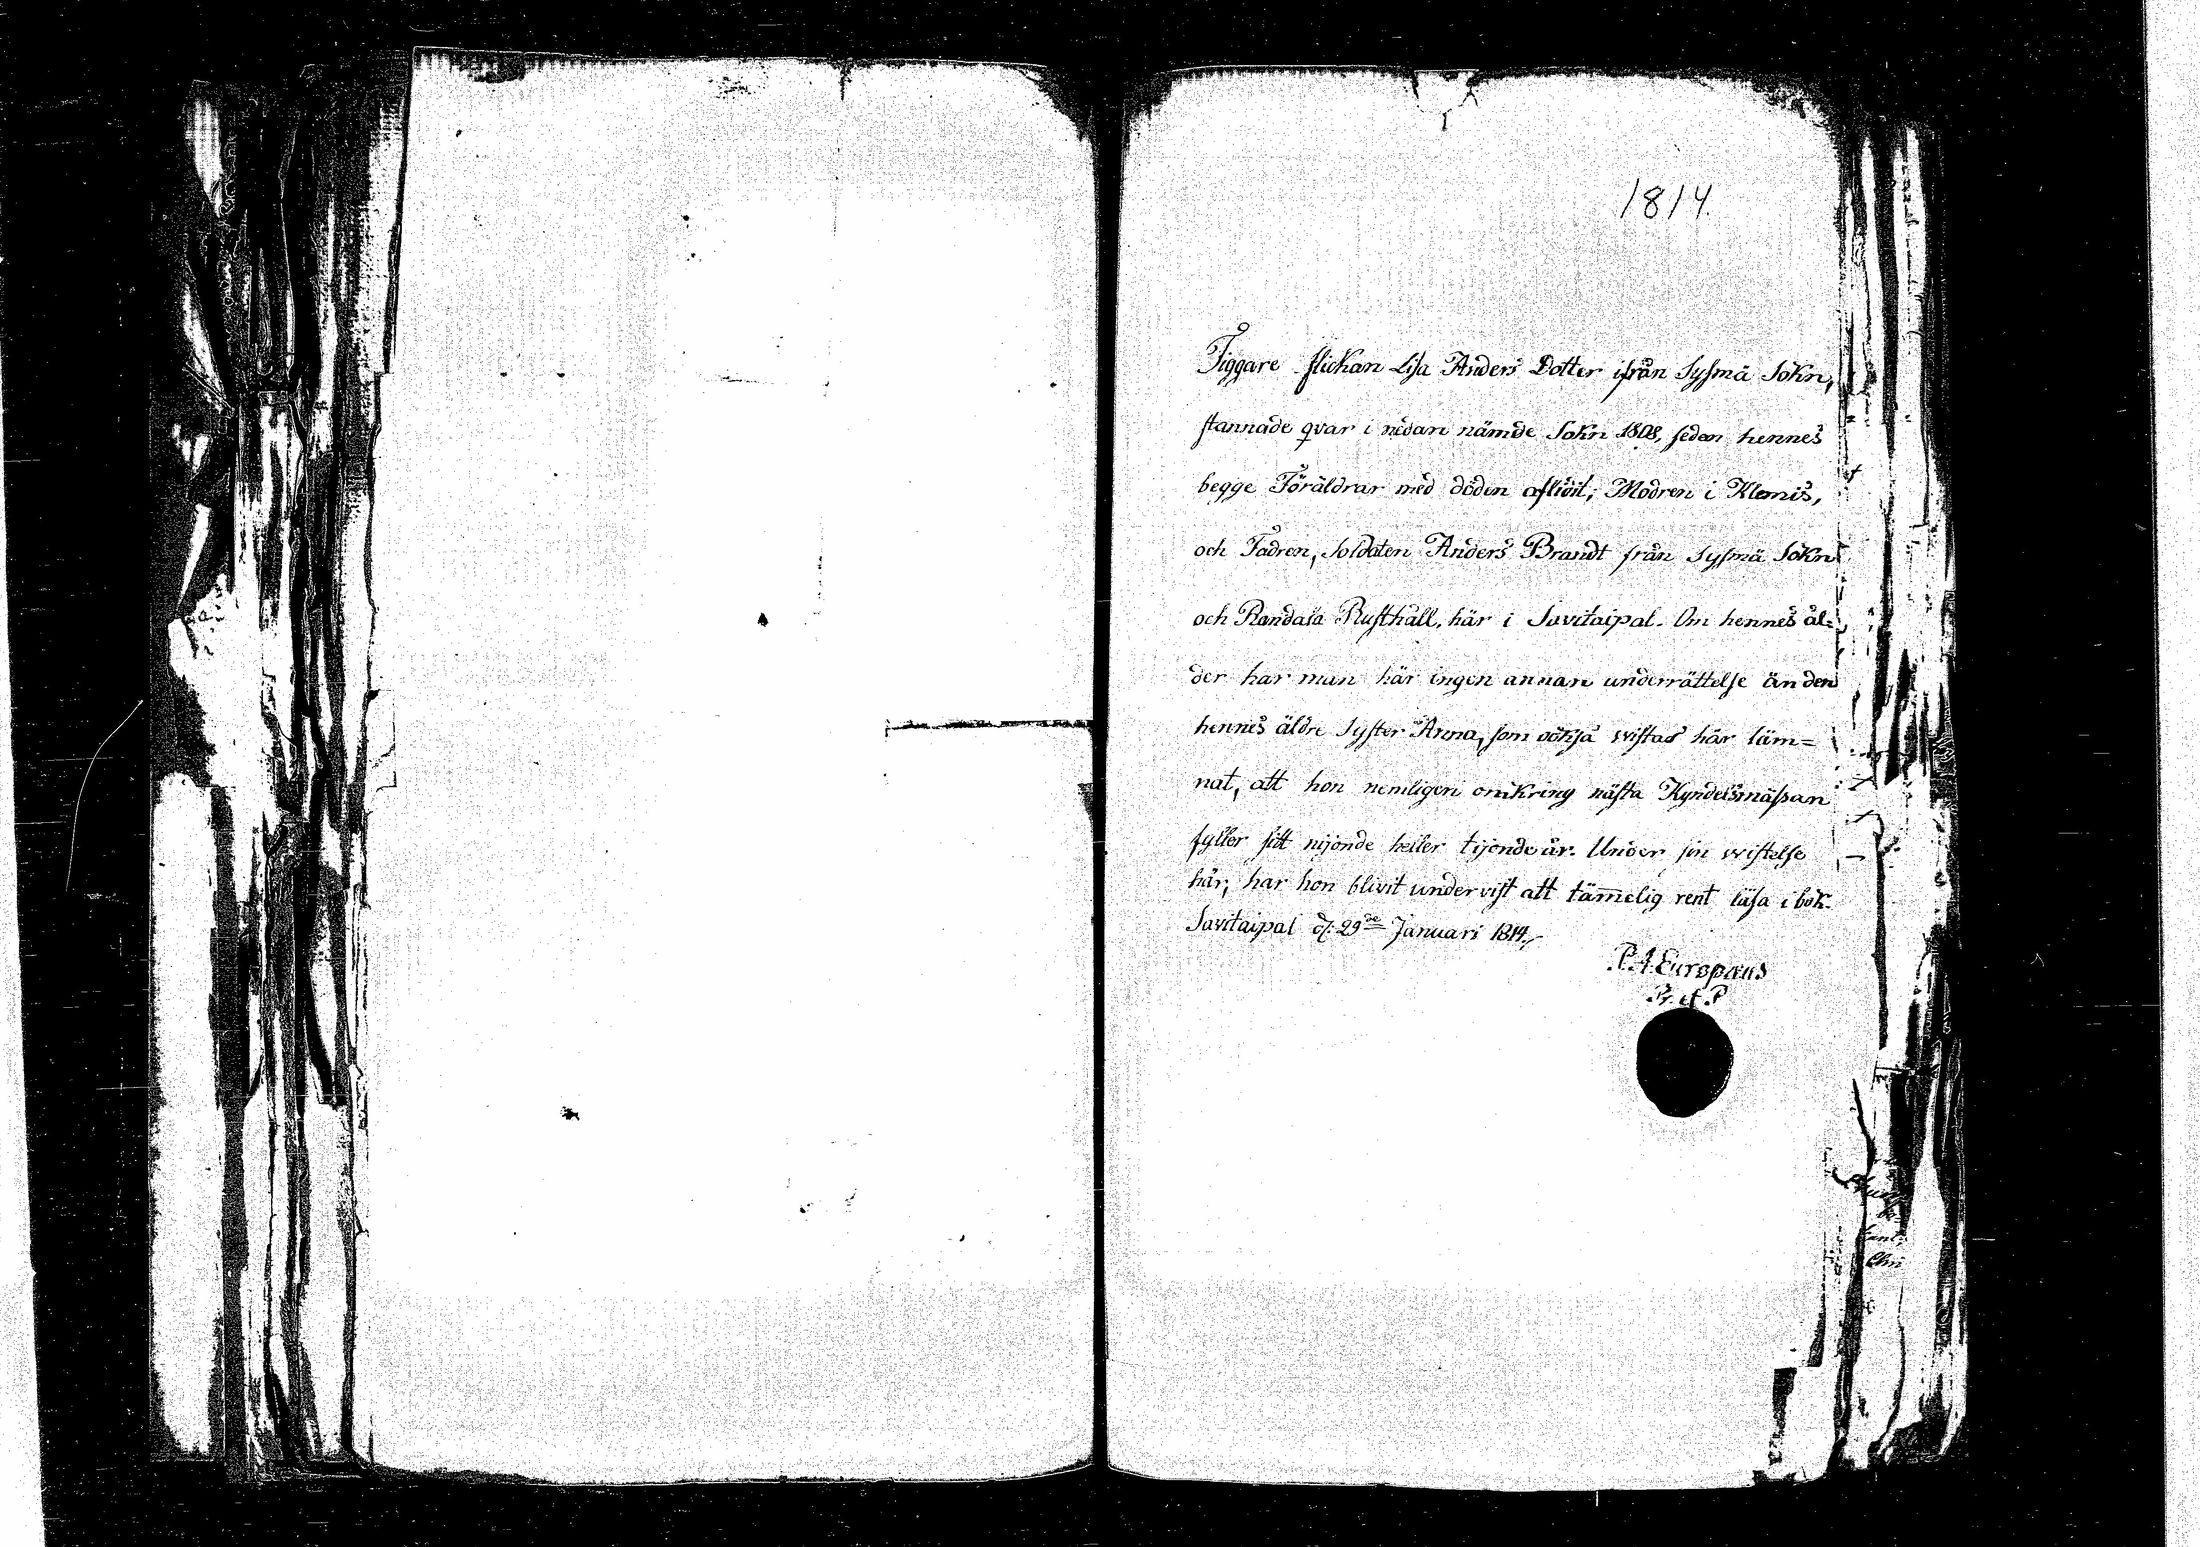 1814.
Tiggare flickan Lisa Anders Dotter ifrån Sysmä Sokn,
stannade qvar i nedan nämde Sokn 1808, sedan hennes
begge Föräldrar med döden aflidit; Modren i Klemis,
och Fadren, Soldaten Anders Brandt från Sysmä Sokn
och Randala Rusthåll, här i Savitaipal. Om hennes ål=
der har man här ingen annan underrättelse än den
hennes äldre Syster Anna, som också vistas här läm=
nat, att hon nemligen omkring nästa Kyndelsmässan
fyller sitt nijonde heller tijonde år. Under sin vistelse
här, har hon blivit undervist att tämelig rent läsa i bok.
Savitaipal d: 29de Januari 1814.
P. A. Europæus
Pr. et P